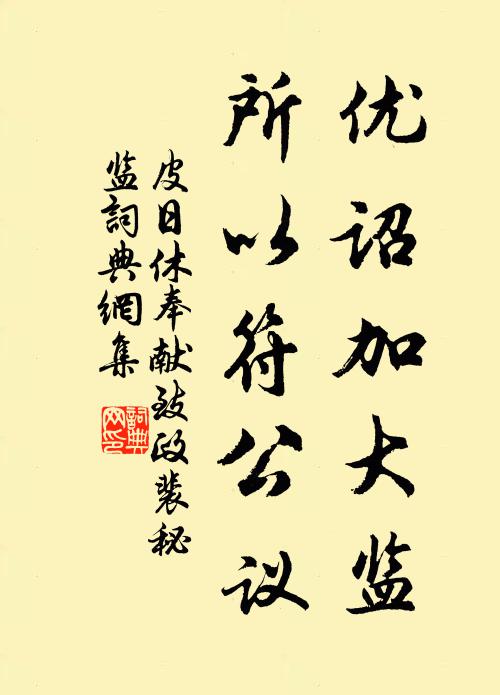 优诏加大监
所以符公议
皮日休奉献致政裴秘
监詞典網集
詞典
网印